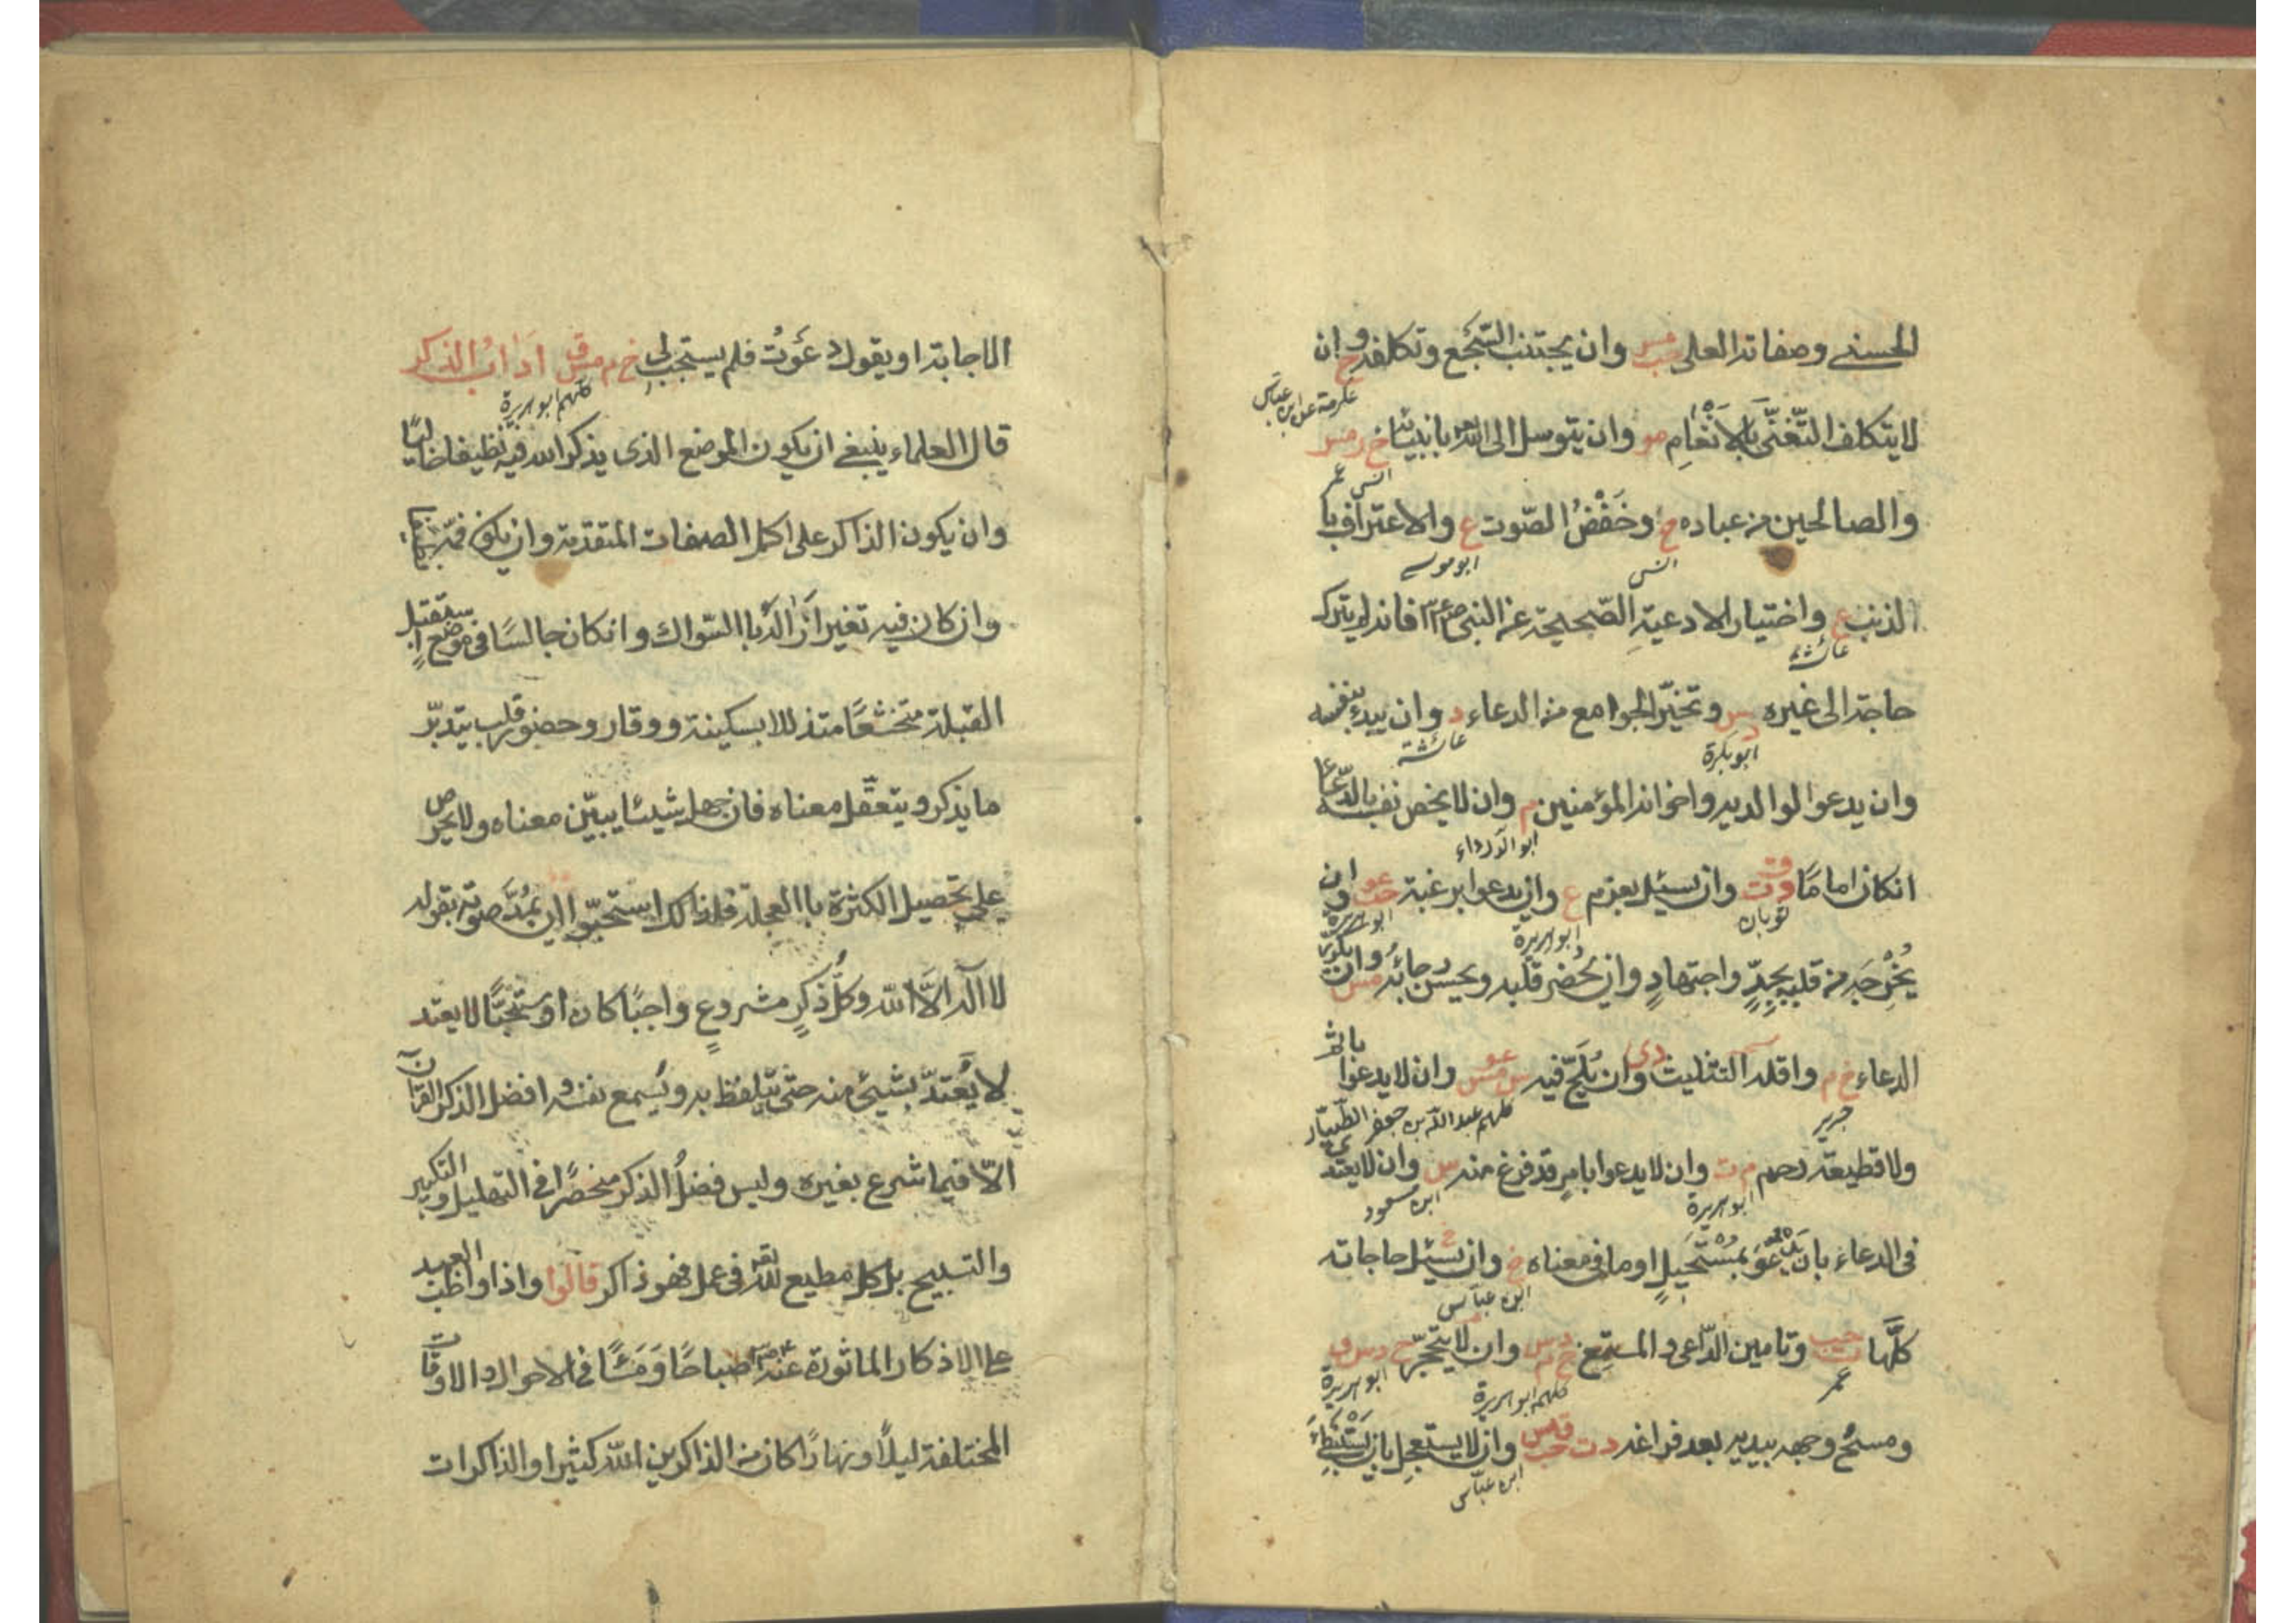 الحسنى وصفاته العلى حب مس وان يجتنب السّجع وتكلفه خ وان
عكرمة عن ابن عباس
لا يتكلف التّغنّى بالانغام مو وان يتوسل الى الله بانبيائه خ ر مس
انس عمر
والصالحين من عباده خ وخفض الصّوت ع والاعتراف با
انس ابو موسى
الذنب ع واختيار الادعية الصّحيحة عن النبى صلعم فانه لم يترك
عائشة
حاجة الى غيره د س وتخيّر الجوامع من الدعاء د وان يبدء بنفسه
ابو بكرة عائشة
وان يدعوا لوالديه واخوانه المؤمنين م وان لا يخص نفسه بالدّعا
ابو الدّرداء
انكان اماما د ت ق وان يسئل بعزم ع وان يدعوا برغبة حب عو وان
ثوبان ابو هريرة ابو هريرة
يخرجه من قلبه بجدّ واجتهاد وان يحضر قلبه ويحسن رجائه مس وان يكرر
الدعاء خ م واقله التثليث د ى وان يلحّ فيه س مس عو وان لا يدعوا باثم
جرير كلهم عبد الله بن جعفر الطّيّار
ولا قطيعة رحم م ت وان لا يدعوا بامر قد فرغ منه س وان لا يعتدى
ابو هريرة ابن مسعود
فى الدعاء بان يدعو بمستحيل او ما فى معناه خ وان يسئل حاجاته
ابن عباس
كلّها ت حب وتامين الدّاعى والمستمع خ م د س وان لا يتحجّر خ د س ق
عمر كلهم ابو هريرة ابو هريرة
ومسح وجهه بيديه بعد فراغه د ت حب ق مس وان لا يستعجل بان يستبطئ
ابن عباس
الاجابة او يقول دعوت فلم يستجب لى خ م د س ق اداب الذكر
كلهم ابو هريرة
قال العلماء ينبغى ان يكون الموضع الذى يذكر الله فيه نظيفا خاليا
وان يكون الذاكر على اكمل الصفات المتقدمة وان يكون فمه نظيفا
وان كان فيه تغير ازاله با السّواك وانكان جالسًا فى موضع استقبل
القبلة متخشعًا متذللا بسكينة ووقار وحضور قلب يتدبّر
ما يذكر ويتعقّل معناه فان جهل شيئا يبيّن معناه ولا يحرص
على تحصيل الكثرة با العجلة فلذالك استحبّوا ان يمدّ صوته بقوله
لا اله الّا الله وكلّ ذكر مشروع واجبًا كان او مستحبًّا لا يعتد
لا يعتدّ بشيئ منه حتى يتلفّظ به ويسمع نفسه وافضل الذكر القران
الّا فيما شرع بغيره وليس فضل الذكر منحصرًا فى التهليل والتكبير
والتسبيح بل كل مطيع لله تعالى فى عمل فهو ذاكر قالوا واذا واظب العبد
على الاذكار الماثورة عنه صباحًا ومساءً فى الاحوال والاوقات
المختلفة ليلًا ونهارًا كان من الذاكرين الله كثيرا والذاكرات